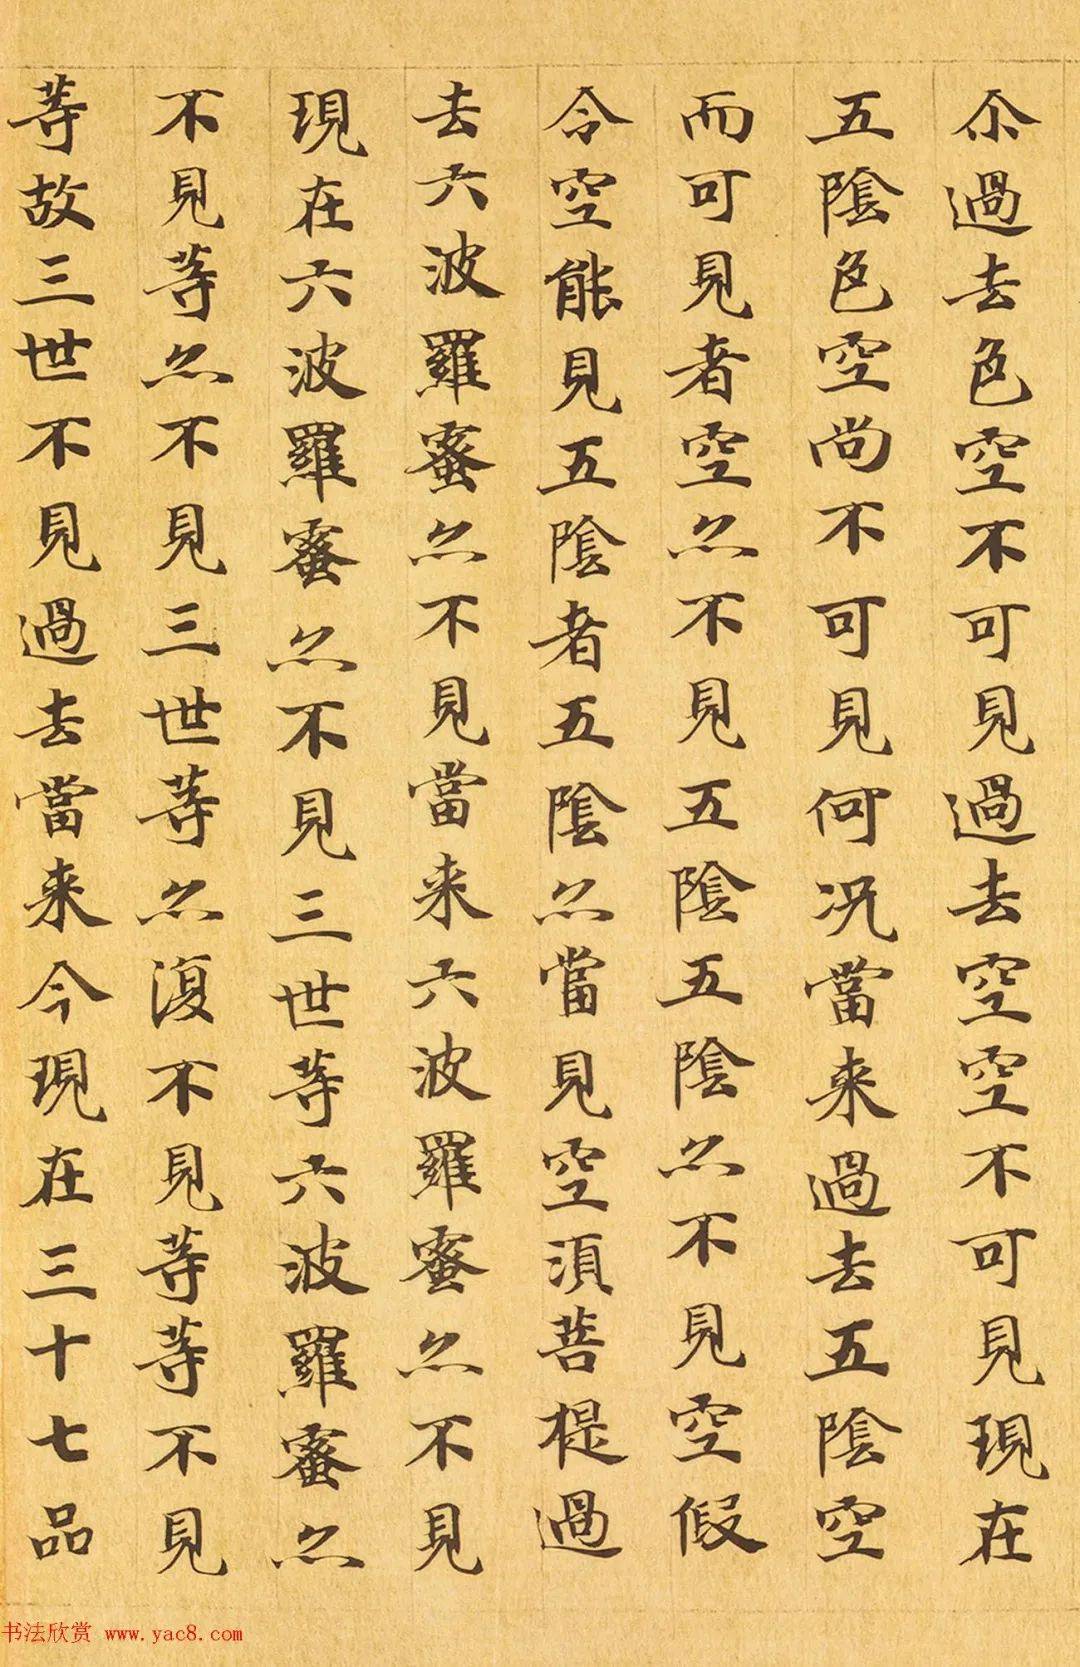 尒過去色空不可見過去空空不可見現在
五陰色空尚不可見何況當来過去五陰空
而可見者空亦不見五陰五陰亦不見空假
令空能見五陰者五陰亦當見空須菩提過
去六波羅蜜亦不見當来六波羅蜜亦不見
現在六波羅蜜亦不見三世等六波羅蜜亦
不見等亦不見三世等亦復不見等等不見
等故三世不見過去當来今現在三十七品
书法欣赏 www.yac8.com